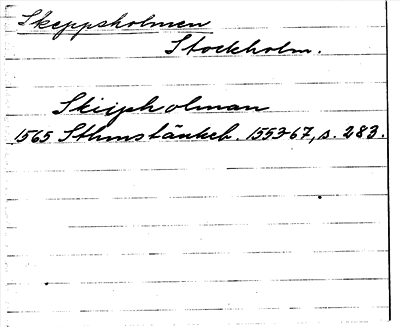 Skeppsholmen
Stockholm.
Skiipholman
1565 Sthms tänkeb. 1553-67, s. 283.